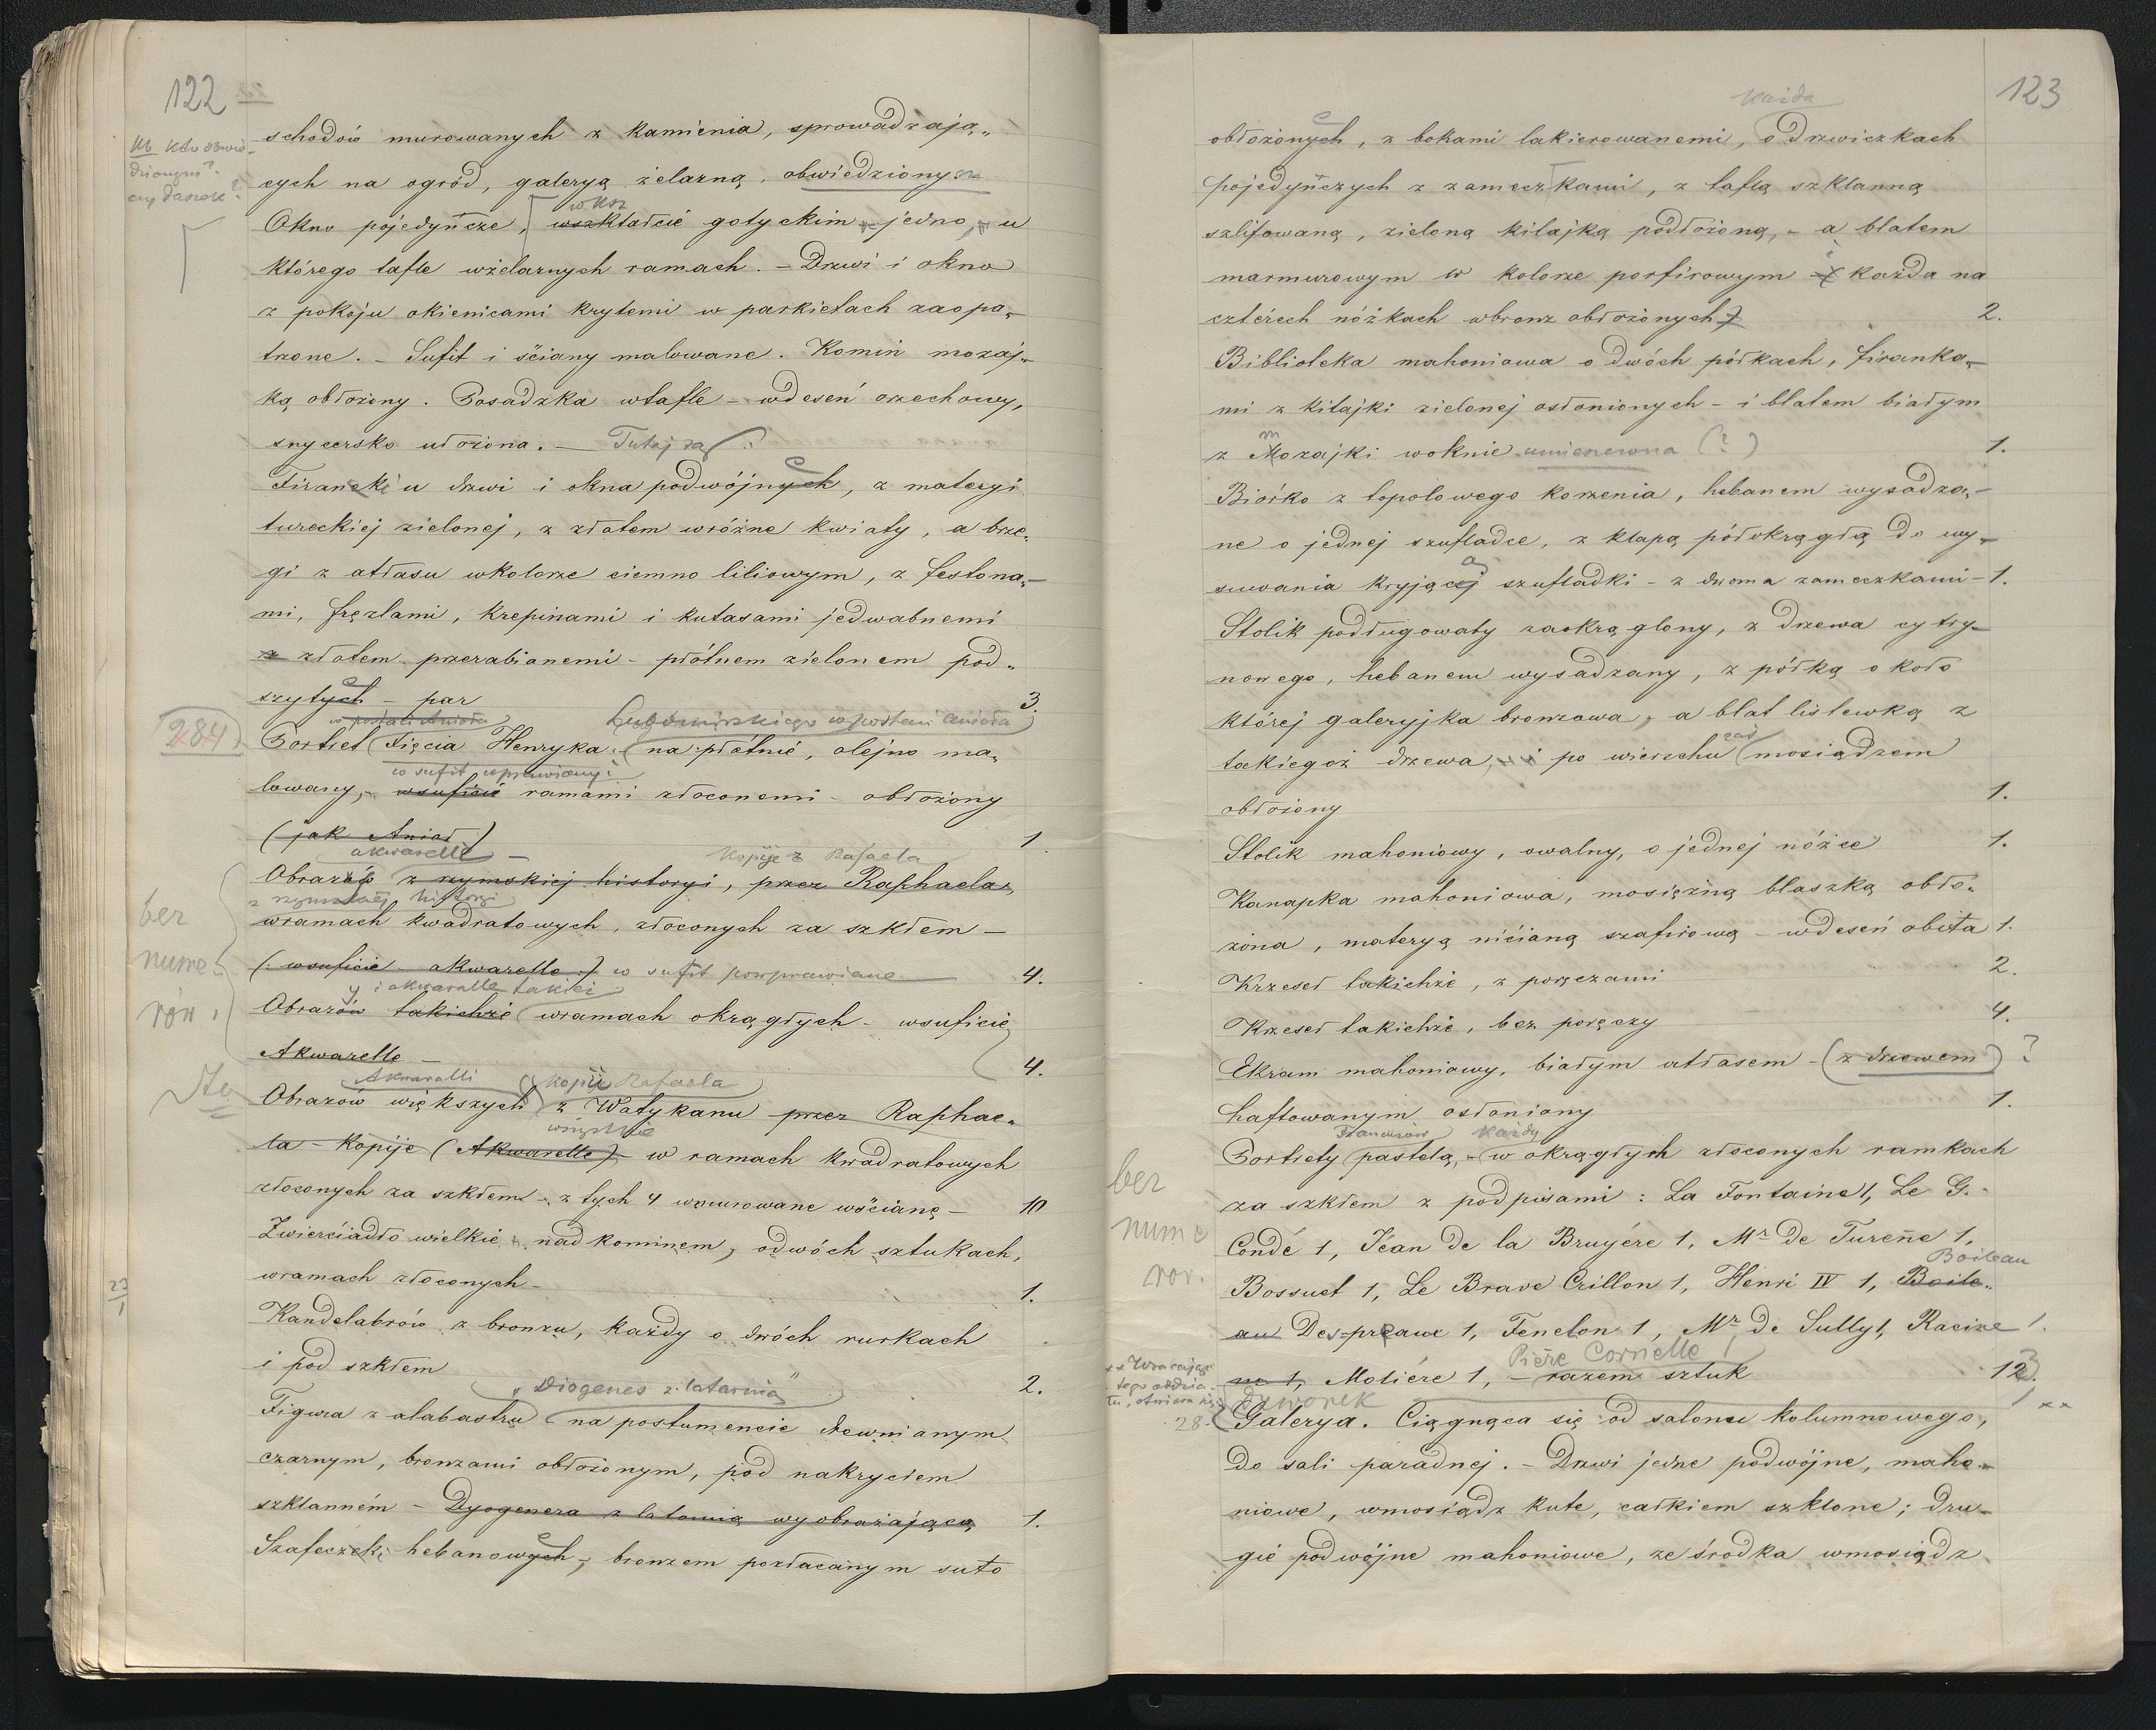 122
schodów murowanych z kamienia, sprowadzają„
cych na ogród, galeryą żelazną, obwiedzionym
Okno pojedyńcze, wkształcie gotyckim – jedno, u
którego tafle wżelaznych ramach. – Drzwi i okno
z pokoju okienicami krytemi w parkietach zaopa„
trzone. – Sufit i ściany malowane. Komin mozaj„
ką obłożony. Posadzka wtafle – wdeseń orzechowy,
snycersko ułożona. – Tutaj są:
Firanek u drzwi i okna podwójnych, z materyi
tureckiej zielonej, z złotem wróżne kwiaty, a brze„
gi z atłasu wkolorze ciemno liliowym, z festona„
mi, fręzlami, krepinami i kutasami jedwabnemi
z złotem przerabianemi – płótnem zielonem pod„
szytych – par 3.
w postaci Anioła Lubomirskiego w postaci anioła
284
Portret Xięcia Henryka na płótnie, olejno ma„
w sufit wprawiony i
lowany, – wsuficie ramami złoconemi – obłożony
(jak Anioł) 1
akwarelle – kopije z Rafaela
Obrazów z rzymskiej historyi, przez Raphaela,
z rzymskiej historyi
wramach kwadratowych, złoconych za szkłem –
bez nume„ rów.
(: wsuficie – akwarelle :) w sufit powprawiane 4.
y i akwarelle takież
Obrazów takichże wramach okrągłych – wsuficie
Akwarelle – 4.
Akwarelli kopije Rafaela
Obrazów większych z Watykanu przez Raphae„
wszystkie
la – Kopije (Akwarelle) – w ramach kwadratowych
złoconych za szkłem – z tych 4 wmurowane wścianę – 10
Zwierciadło wielkie – nad kominem, odwóch sztukach,
wramach złoconych – 1.
Kandelabrów z bronzu, każdy o dwóch rurkach
i pod szkłem 2.
„Diogenes z latarnią"
Figura z alabastru na postumencie drewnianym
czarnym, bronzami obłożonym, pod nakryciem
szklanném – Dyogenesa z latarnią wyobrażająca 1.
Szafeczek hebanowych, bronzem pozłacanym suto
123
każda
obłożonych, z bokami lakierowanemi, o drzwiczkach
pojedyńczych z zameczkami, z taflą szklanną
szlifowaną, zieloną kitajką podłożoną, – a blatem
marmurowym w kolorze porfirowym – każda na
cztérech nóżkach wbronz obłożonych 2.
Biblioteka mahoniowa o dwóch półkach, firanka„
mi z kitajki zielonej osłonionych – i blatem białym
z Mozajki woknie umieszczona (?) 1.
Biórko z topolowego korzenia, hebanem wysadza„
ne o jednej szufladce, z klapą półokrągłą do wy„
suwania kryjącej szufladki – z dwoma zameczkami – 1.
Stolik podługowaty zaokrąglony, z drzewa cytry„
nowego, hebanem wysadzany, z półką około
której galeryjka bronzowa, a blat listewką z
takiegoż drzewa, i po wierzchu zaś mosiądzem
obłożony 1.
Stolik mahoniowy, owalny, o jednej nóżce 1.
Kanapka mahoniowa, mosiężną blaszką obło„
żona, materyą nićianą szafirową – wdeseń obita 1.
Krzeseł takichże, z poręczami 2.
Krzeseł takichże, bez poręczy 4.
Ekram mahoniowy, białym atłasem – (z drzewem) ?
haftowanym osłoniony 1.
Francuzów każdy
Portrety pastelą, – w okrągłych złoconych ramkach
bez nume rów.
za szkłem z podpisami: La Fontaine 1, Le G.
Condé 1, Jéan de la Bruyére 1, Mr de Turenne 1,
Boileau
Bossuet 1, Le Brave Crillon 1, Henri IV 1, Boile„
au Despreaux 1, Fenelon 1, Mr de Sully 1, Racine 1.
Piere Cornelle 1
ne 1, Moliére 1, – razem sztuk 12
Galerya. Ciągnąca się od salonu kolumnowego,
do sali paradnej. – Drzwi jedne podwójne, maho„
niowe, wmosiądz kute, całkiem szklone; dru„
gié podwójne mahoniowe, ze środka wmosiądz